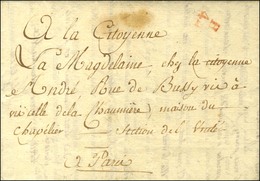 A la Citoyenne
La Magdelaine, chez la citoyenne
André Rue de Bussy vis à
vis alle de la Chaumière maison du
Chapelier Section de l'Unité
à Paris